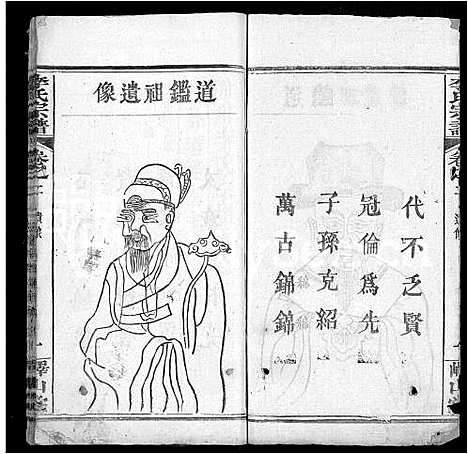 代不乏賢
冠倫為先
子孫克紹
萬古錦錦
道鑑祖遺像
李氏宗譜
卷之
遺像
李氏宗譜